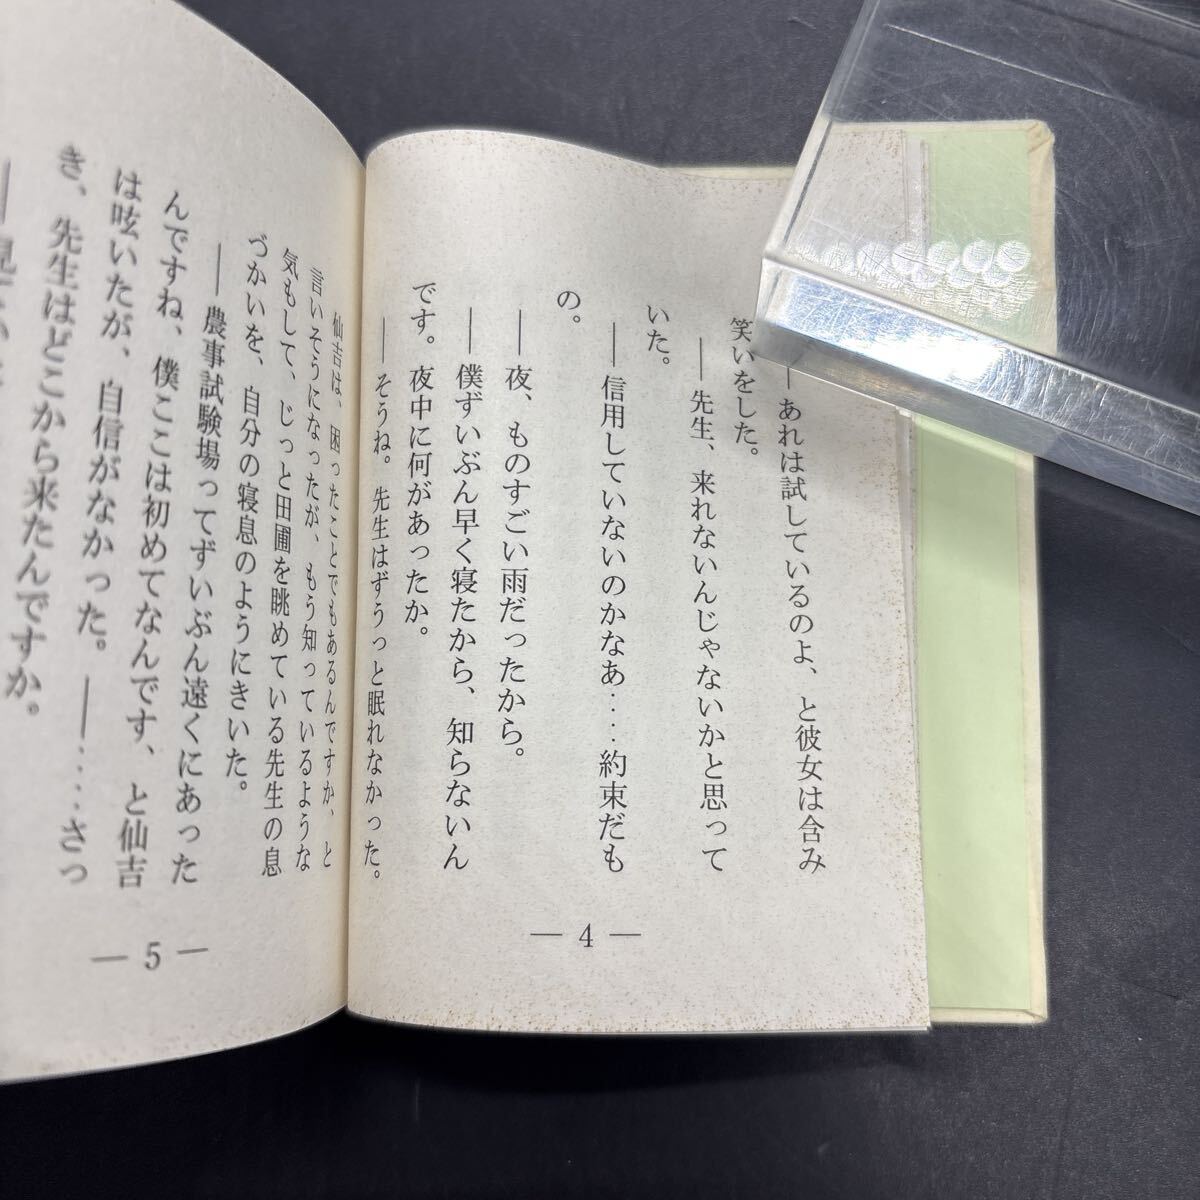 ――あれは試しているのよ、と彼女は含み
笑いをした。
――先生、来れないんじゃないかと思って
いた。
――信用していないのかなあ‥‥約束だも
の。
――夜、ものすごい雨だったから。
――僕ずいぶん早く寝たから、知らないん
です。夜中に何があったか。
――そうね。先生はずうっと眠れなかった。
― 4 ―
仙吉は、困ったことでもあるんですか、と
言いそうになったが、もう知っているような
気もして、じっと田圃を眺めている先生の息
づかいを、自分の寝息のようにきいた。
――農事試験場ってずいぶん遠くにあった
んですね、僕ここは初めてなんです、と仙吉
は呟いたが、自信がなかった。――‥‥さっ
き、先生はどこから来たんですか。
― 5 ―